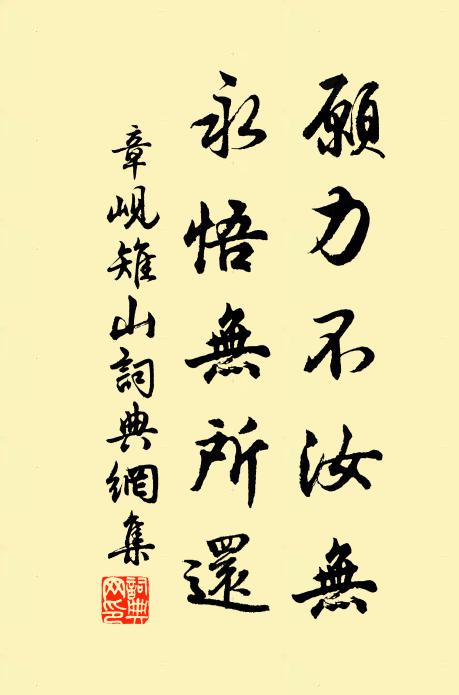 願力不汝無
永悟無所還
章峴雉山詞典網集
詞典網印